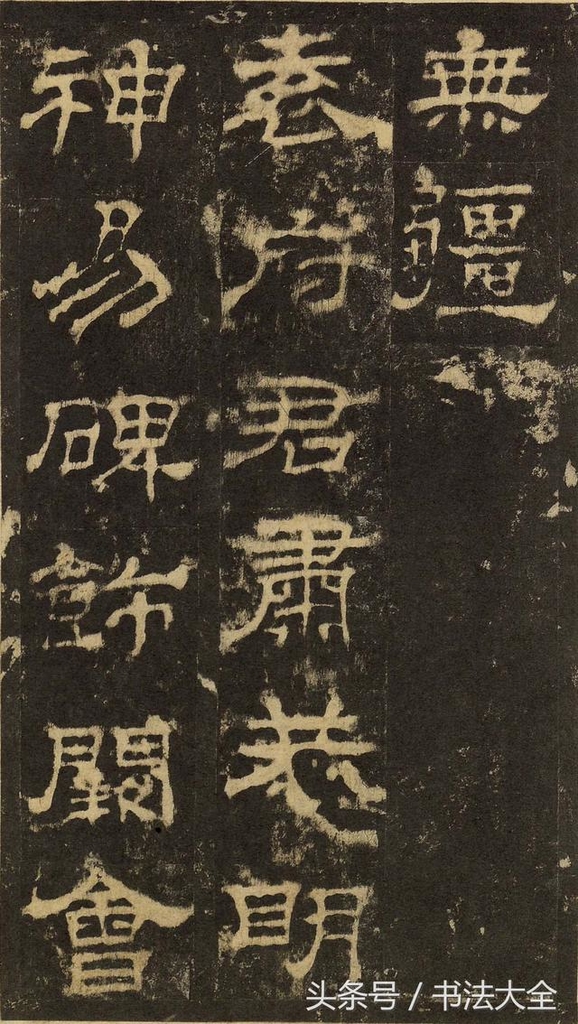 無疆
袁府君肅恭明
神易碑飾闕會
头条号 / 书法大全